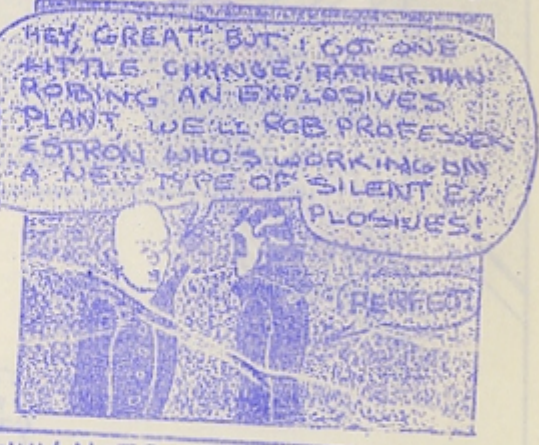 HEY, GREAT! BUT I GOT ONE
LITTLE CHANGE, RATHER THAN
ROBING AN EXPLOSIVES
PLANT, WE'LL ROB PROFESSOR
ESTRON WHO'S WORKING ON
A NEW TYPE OF SILENT EX-
PLOSIVES!
PERFECT!